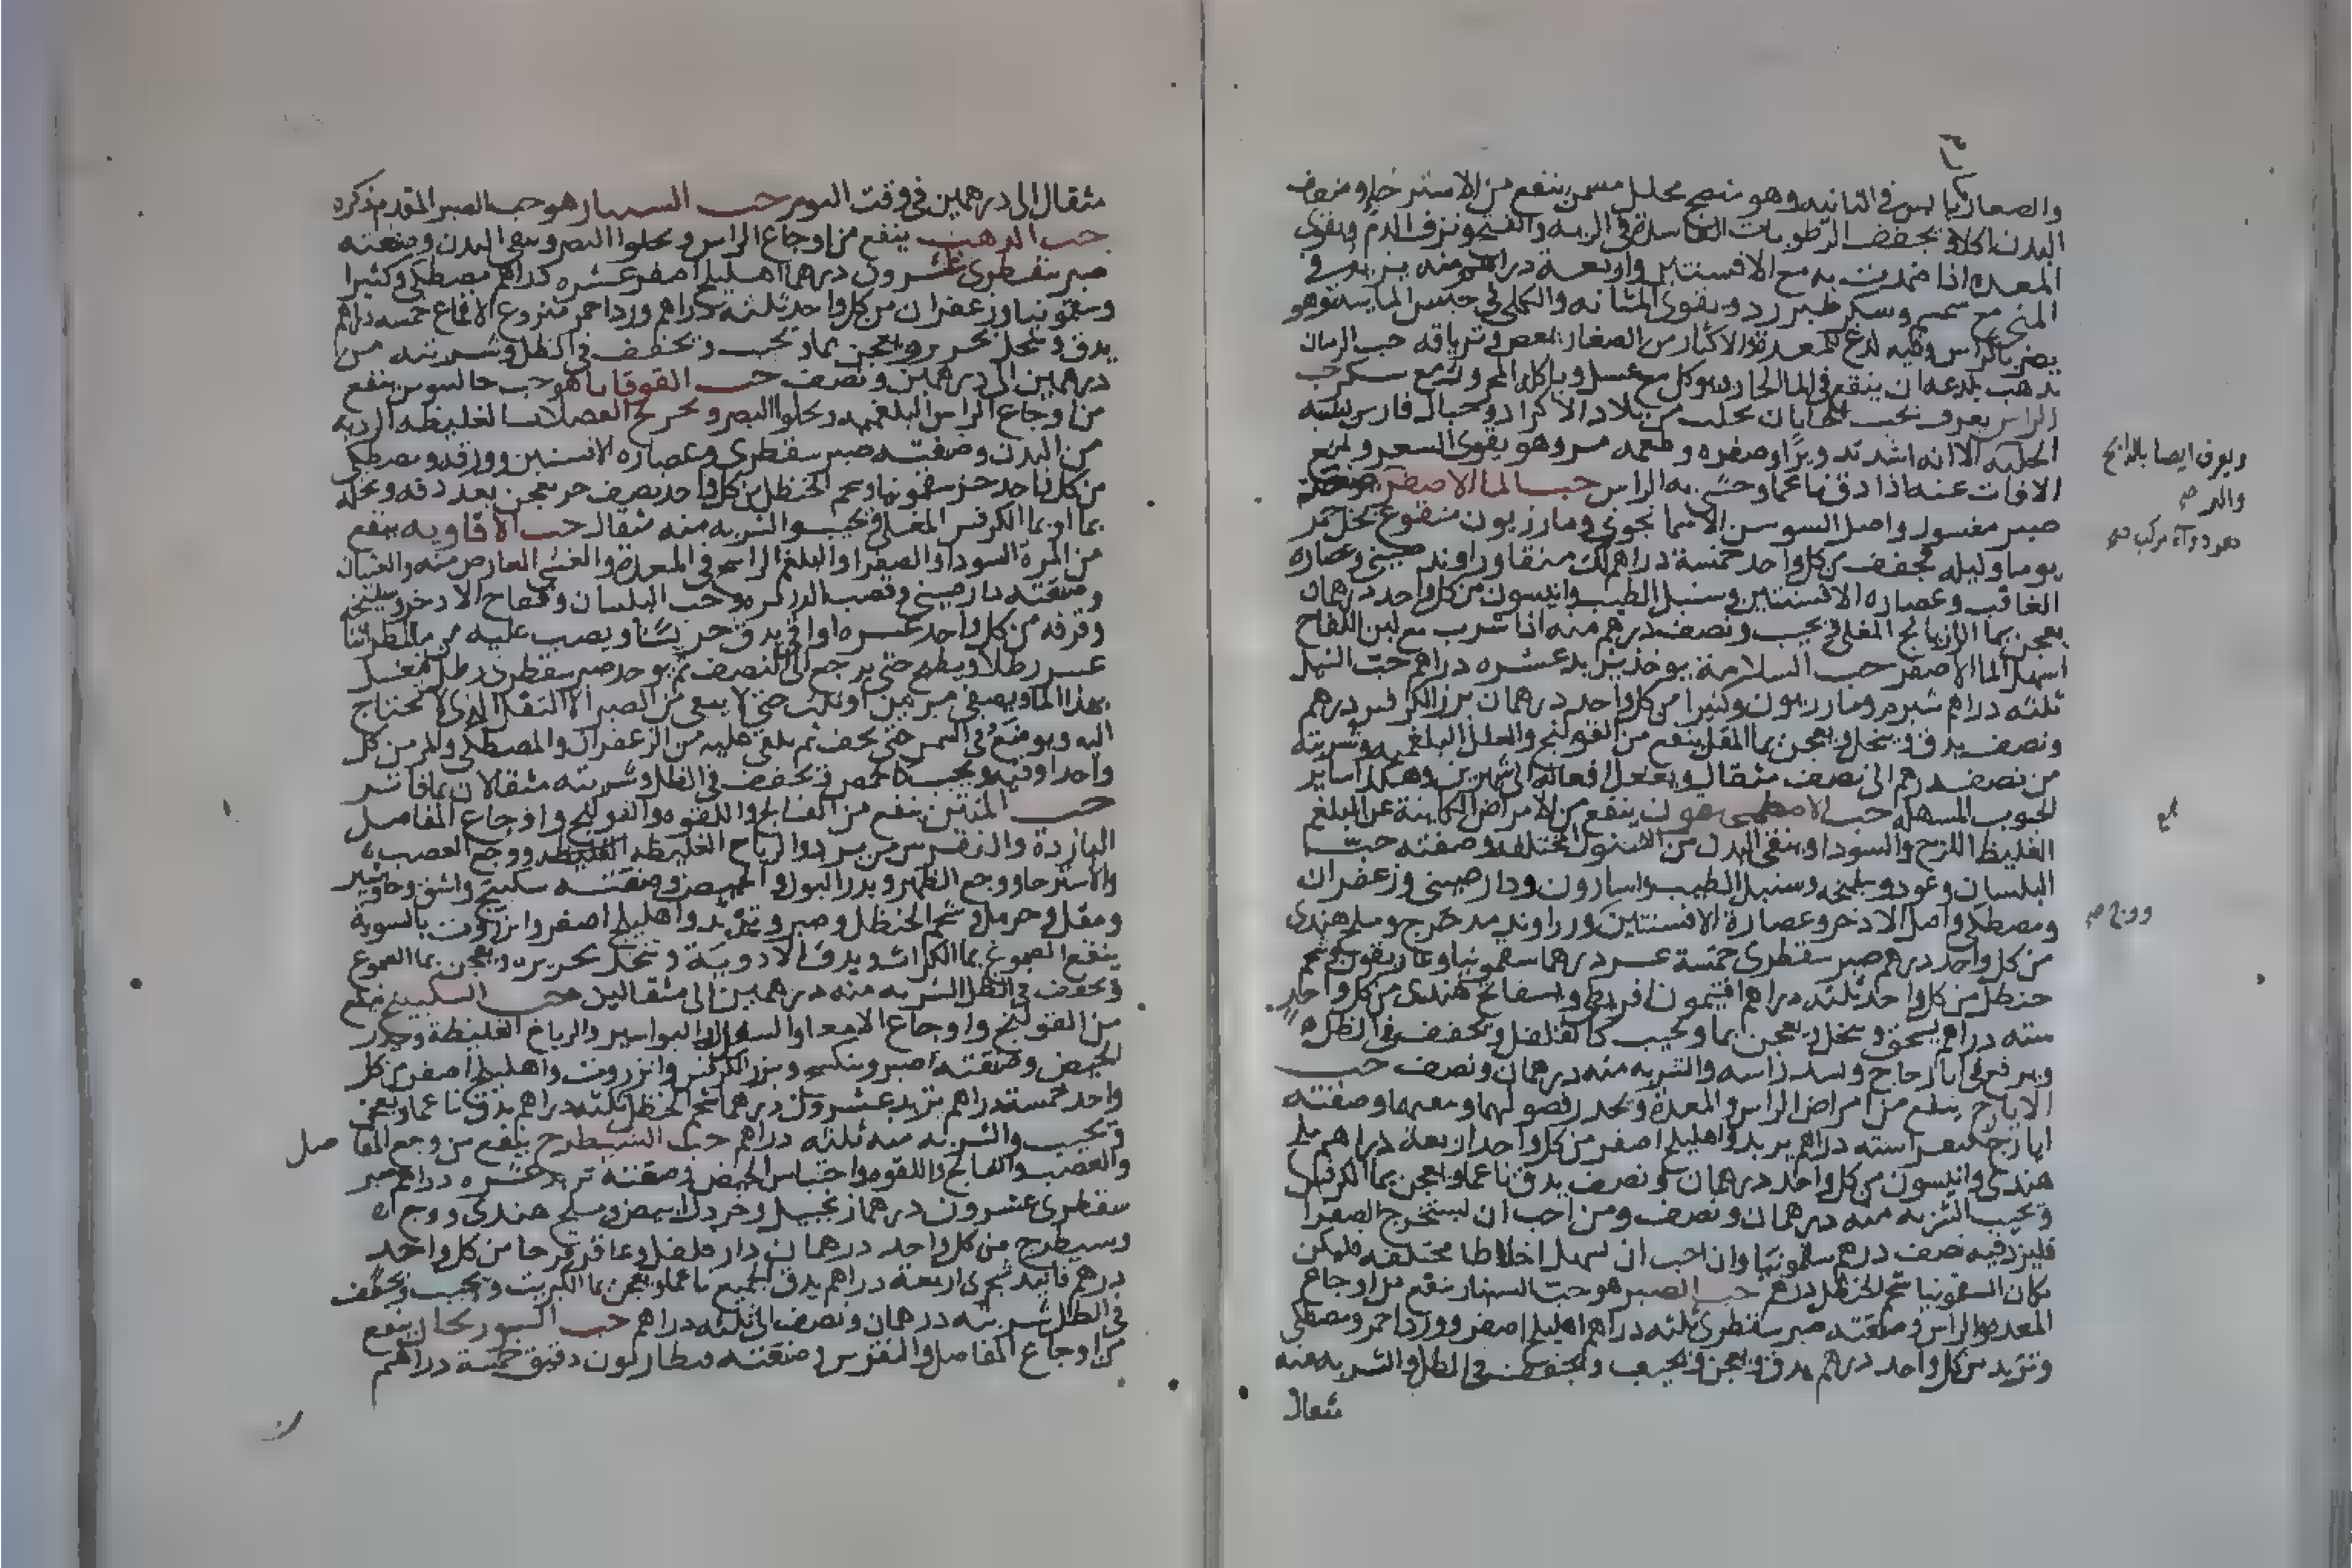 والصعار يابس في الثانيه وهو منضج محلل مسمن ينفع من الاسترخاء وضعف
البدن اكلا ويجفف الرطوبات الفاسدة في الريه والقيح ونزف الدم ويقوى
المعده اذا ضمدت به مع الافسنتين واربعة دراهم منه يزيد في
المنى مع سمسم وسكر طبرزد ويقوى المثانه والكلى في حبس الما وهو
يضر بالراس وفيه لذع للمعدة والاكبار من الصغار وترياقه حب الرمان
يذهب لذعه ان ينقع في الما الحار ويوكل مع عسل وياكله المحرور مع سكر حب
الراس يعرف بحب يجلب من بلاد الاكراد وجبال فارس يشبه
الحلبه الا انه اشد تدويرا وصفره وطعمه مر وهو يقوى الشعر ويمنع
الافات عنه اذا دق ناعما وحشى به الراس حب الما الاصفر صنعته
صبر مغسول واصل السوسن الاسمانجونى ومازريون منقوع بخل خمر
يوما وليله مجفف من كل واحد خمسة دراهم لك منقا وراوند صينى وعصاره
الغافت وعصاره الافسنتين وسنبل الطيب وانيسون من كل واحد درهمان
يعجن بما الرازيانج المغلى ويحبب ونصف درهم منه اذا شرب مع لبن اللقاح
اسهل الما الاصفر حب السلامة يوخذ تربد عشره دراهم حب النيل
ثلثه دراهم شبرم ومازريون وكثيرا من كل واحد درهمان بزر الكرفس درهم
ونصف يدق وينخل ويعجن بما المقل ينفع من القولنج والعلل البلغميه وشربته
من نصف درهم الى نصف مثقال ويفعل افعاله الى شهرين وهكذا ساير
الحبوب المسهله حب الاصطمخيقون ينفع من الامراض الكاينة عن البلغم
الغليظ اللزج والسودا وينقى البدن من الفضول المختلفه وصفته حب
البلسان وعوده وسليخه وسنبل الطيب واسارون ودارصينى وزعفران
ومصطكى واصل الاذخر وعصارة الافسنتين وزراوند مدحرج وملح هندى
من كل واحد درهم صبر سقطرى خمسة عشر درهما سقمونيا وغاريقون وشحم
حنظل من كل واحد ثلثه دراهم افتيمون اقريطى وبسفايج هندى من كل واحد
سته دراهم يسحق وينخل ويعجن بما ويحبب كالفلفل ويجفف في الظل
ويرفع في انا زجاج ويسد راسه والشربه منه درهمان ونصف حب
الايارج ينفع من امراض الراس والمعدة ويحدر فضولهما وينقيهما وصفته
ايارج فيقرا سته دراهم تربد واهليلج اصفر من كل واحد اربعة دراهم ملح
هندى وانيسون من كل واحد درهمان ونصف يدق ناعما ويعجن بما الكرفس
ويحبب الشربه منه درهمان ونصف ومن احب ان يستخرج الصفرا
فليزد فيه نصف درهم سقمونيا وان احب ان يسهل اخلاطا مختلفه فليكن
مكان السقمونيا شحم الحنظل درهم حب الصبر هو حب السهار ينفع من اوجاع
المعده والراس وصنعته صبر سقطرى ثلثه دراهم اهليلج اصفر وورد احمر ومصطكى
وتربد من كل واحد درهم يدق ويعجن ويحبب ويجفف في الظل والشربه منه
مثقال
ويعرف ايضا بالدايح
مثقال الى درهمين في وقت النوم حب السهار هو حب الصبر المقدم ذكره
حب الذهب ينفع من اوجاع الراس ويجلوا البصر وينقى البدن وصنعته
صبر سقطرى عشرون درهما اهليلج اصفر عشره دراهم مصطكى وكثيرا
وسقمونيا وزعفران من كل واحد ثلثه دراهم ورد احمر منزوع الاقماع خمسه دراهم
يدق وينخل بحرير ويعجن بماء ويحبب ويجفف في الظل وشربته من
درهمين الى درهمين ونصف حب القوقايا هو حب جالينوس ينفع
من اوجاع الراس البلغميه ويجلوا البصر ويخرج الفضلات الغليظه الرديه
من البدن وصنعته صبر سقطرى وعصاره الافسنتين وورقه ومصطكى
من كل واحد جز سقمونيا وشحم الحنظل من كل واحد نصف جز يعجن بعد دقه ونخله
بما او بما الكرفس المغلى ويحبب والشربه منه مثقال حب الافاويه ينفع
من المرة السودا والصفرا والبلغم الراسخ في المعدة والغشى العارض منه والغثيان
وصنعته دارصينى وقصب الذريره وحب البلسان وفقاح الاذخر وسليخه
وقرفه من كل واحد عشره اواقى يدق جريشا ويصب عليه من ما المطر اثنا
عشر رطلا ويطبخ حتى يرجع الى النصف ثم يوخذ صبر سقطرى رطل يغسل
بهذا الما ويصفى مرتين او ثلث حتى لا يبقى من الصبر الا الثقل الذى لا يحتاج
اليه ويوضع في الشمس حتى يجف ثم يلقى عليه من الزعفران والمصطكى والمر من كل
واحد اوقيه ويحبب كالحمص ويجفف في الظل وشربته مثقالان بما فاتر
حب المنتن ينفع من الفالج واللقوه والقولنج واوجاع المفاصل
الباردة والنقرس من برد والرياح الغليظه ووجع العصب
والاسترخا ووجع الظهر ويدر البول والحيض وصنعته سكبينج واشق وجاوشير
ومقل وحرمل وشحم الحنظل وصبر وتربد واهليلج اصفر وانزروت بالسويه
ينقع الصموغ بما الكراث ويدق الادوية وينخل بحريره ويعجن بما الصموغ
ويجفف في الظل الشربه منه درهمين الى مثقالين حب السكبينج ينفع
من القولنج واوجاع الامعا والسفل والبواسير والرياح الغليظة ويدر
الحيض وصنعته صبر وسكبينج وبزر الكرفس وانزروت واهليلج اصفر من كل
واحد خمسة دراهم تربد عشرون درهما شحم الحنظل ثلثه دراهم يدق ناعما ويعجن
ويحبب والشربه منه ثلثه دراهم حب الشيطرج ينفع من وجع المفاصل
والعصب والفالج واللقوه واحتباس الحيض وصنعته تربد عشره دراهم صبر
سقطرى عشرون درهما زنجبيل وخردل ابيض وملح هندى ووج
وشيطرج من كل واحد درهمان دار فلفل وعاقرقرحا من كل واحد
درهم فانيد شجرى اربعة دراهم يدق الجميع ناعما ويعجن بما الكبريت ويحبب ويجفف
في الظل شربته درهمان ونصف الى ثلثه دراهم حب السورنجان ينفع
من اوجاع المفاصل والنقرس وصنعته قنطاريون دقيق خمسة دراهم